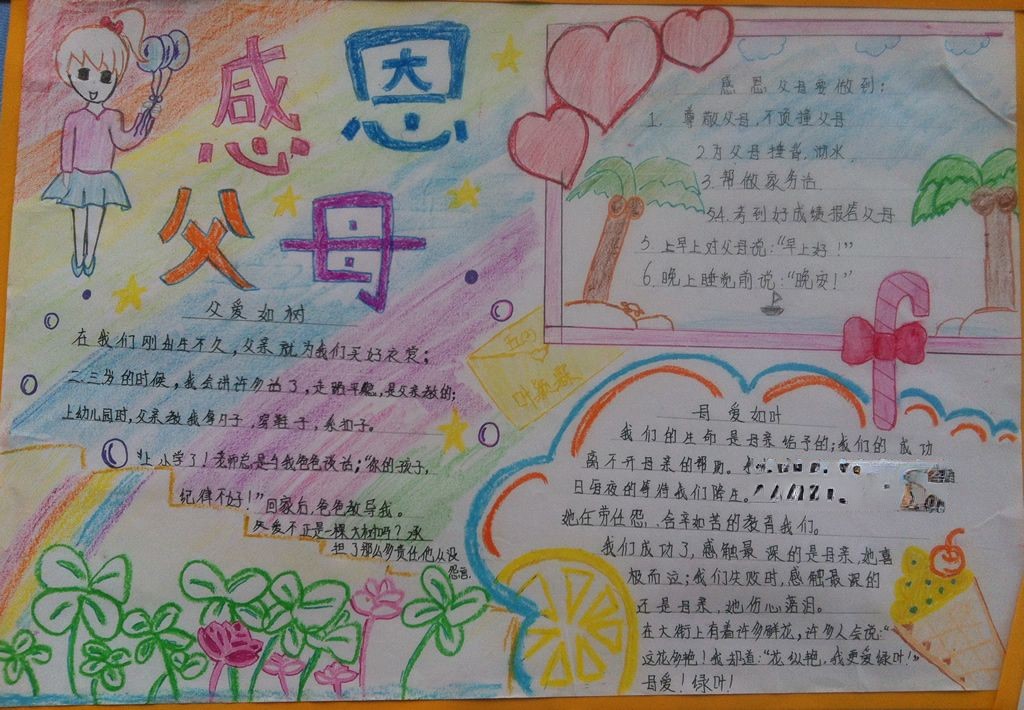 感恩
父母
父爱如树
在我们刚出生不久，父亲就为我们买好衣裳；
二三岁的时候，我会讲许多话了，走路平稳，是父亲教的；
上幼儿园时，父亲教我剪月子，穿鞋子，系扣子。
上小学了！老师总是与我爸爸谈话；“你的孩子，
纪律不好！”回家后，爸爸教导我。
父爱不正是一棵大树吗？承
担了那么多责任他从没
怨言。
感恩父母要做到：
1. 尊敬父母，不顶撞父母
2. 为父母捶背，
3. 帮做家务活
4. 考到好成绩报告父母
5. 上早上对父母说：“早上好！”
6. 晚上睡觉前说：“晚安！”
母爱如叶
我们的生命是母亲给予的；我们的成功
离不开母亲的帮助。
日每夜的等待我们降生。
她任劳任怨、含辛如苦的教育我们。
我们成功了，感触最深的是母亲，她喜
极而泣；我们失败时，感触最深的
还是母亲，她伤心落泪。
在大街上有着许多鲜花，许多人会说：“
这花多艳！我却道：“花纵艳，我更爱绿叶！”
母爱！绿叶！